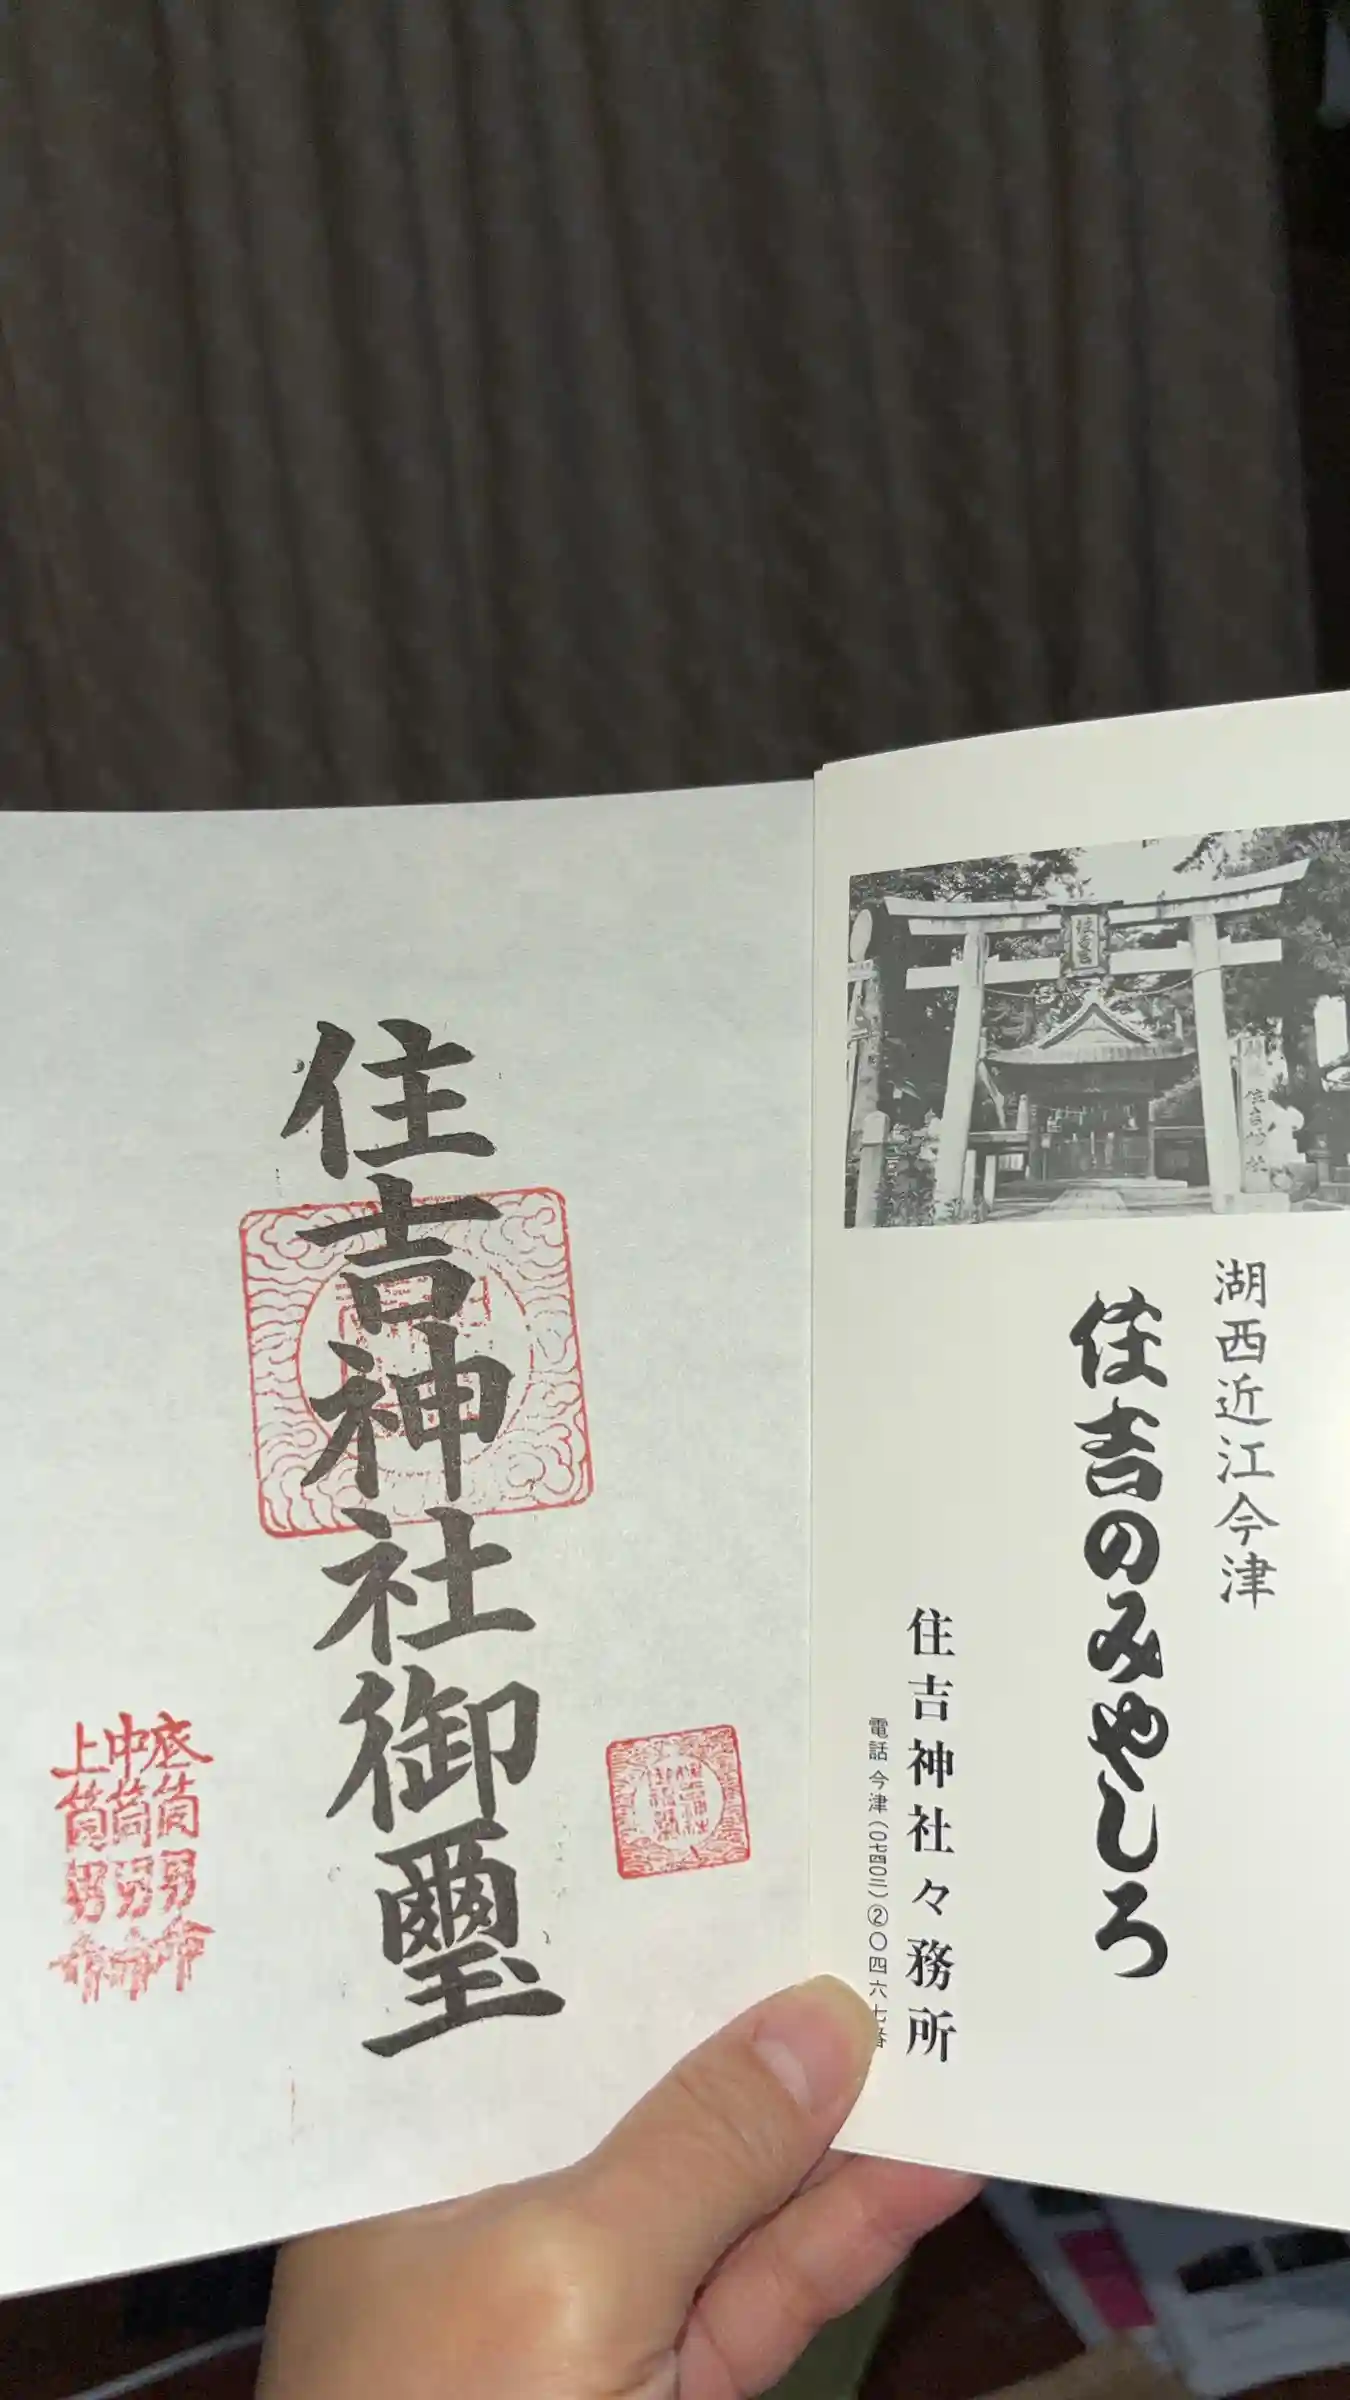 住吉宮
住吉神社
湖西近江今津
住吉のみやしろ
住吉神社々務所
電話 今津(〇七四〇二)②〇四六七番
住吉神社御璽
底筒男命
中筒男命
上筒男命